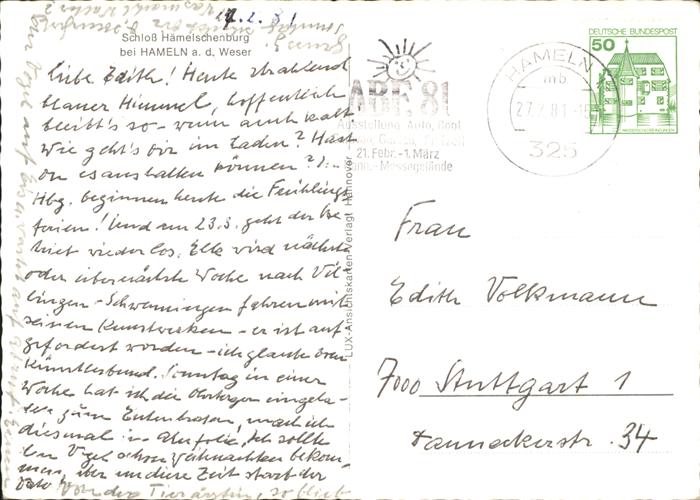 27.2.81
Schloß Hämelschenburg
bei HAMELN a. d. Weser
Liebe Edith! Heute strahlend
blauer Himmel, hoffentlich
bleibt's so - wenn auch kalt
Wie geht's dir im Laden? Hast
du es aushalten können? In
Hbg. beginnen heute die Frühlings
ferien! Und am 23.3. geht der
wieder los. Elke wird nächste
oder übernächste Woche nach Vil
lingen - Schwenningen fahren mit
seinen Kunstwerken - er ist auf-
gefordert worden - ich glaube vom
Künstlerbund. Sonntag in einer
Woche hat ich die eingela-
den zum Entenbraten, mach ich
diesmal in Alufolie. Ich sollte
den Vogel schon Weihnachten bekom-
men, aber um diese Zeit
von der Tierärztin, so blieb
der Vogel auf Eis
LUX-Ansichtskarten-Verlag Hannover
ABF. 81
Ausstellung Auto, Boot
21. Febr. - 1. März
Hann. - Messegelände
HAMELN
mb
27.2.81
325
DEUTSCHE BUNDESPOST
50
WASSERSCHLOSS INZLINGEN
Frau
Edith Volkmann
7000 Stuttgart 1
Danneckerstr. 34